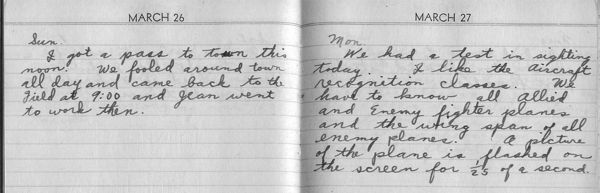 MARCH 26
Sun.
I got a pass to town this
noon. We fooled around town
all day and came back to the
Field at 9:00 and Jean went
to work then.
MARCH 27
Mon.
We had a test in sighting
today. I like the Aircraft
recognition classes. We
have to know all Allied
and Enemy fighter planes
and the wing span of all
enemy planes. A picture
of the plane is flashed on
the screen for 1/25 of a second.